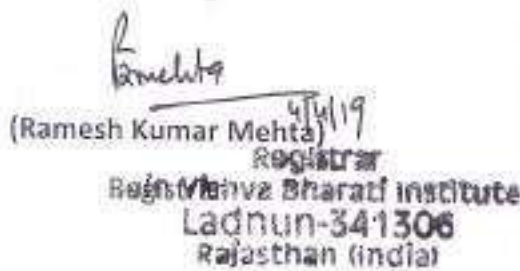 Rmehta
4/4/19
(Ramesh Kumar Mehta)
Registrar
Bharati Institute
Ladnun-341306
Rajasthan (India)